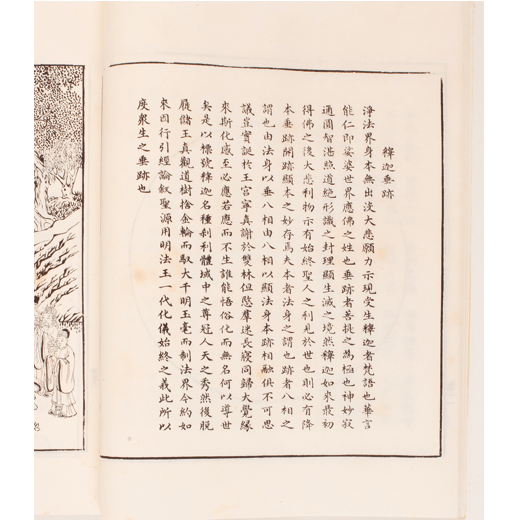 釋迦垂跡
淨法界身本無出沒大悲願力示現受生釋迦者梵語也華言
能仁即娑婆世界應佛之姓也垂跡者菩提之為極也神妙寂
通圓智湛照道絕形識之封理顯生滅之境然釋迦如來最初
得佛之後大悲利物示有始終聖人之利見於世也則必有降
本垂跡開跡顯本之妙存焉夫本者法身之謂也跡者八相之
謂也由法身以垂八相由八相以顯法身本跡相融俱不可思
議豈實誕於王宮寧真謝於雙林但愍群迷長寢同歸大覺緣
來斯化感至必應若應而不生誰能悟俗化而無名何以導世
矣是以標號釋迦名種剎利體域中之尊冠人天之秀然後脫
屣儲王真觀道樹捨金輪而馭大千明玉毫而制法界今約如
來因行引經論敘聖源用明法王一代化儀始終之義此所以
度眾生之垂跡也